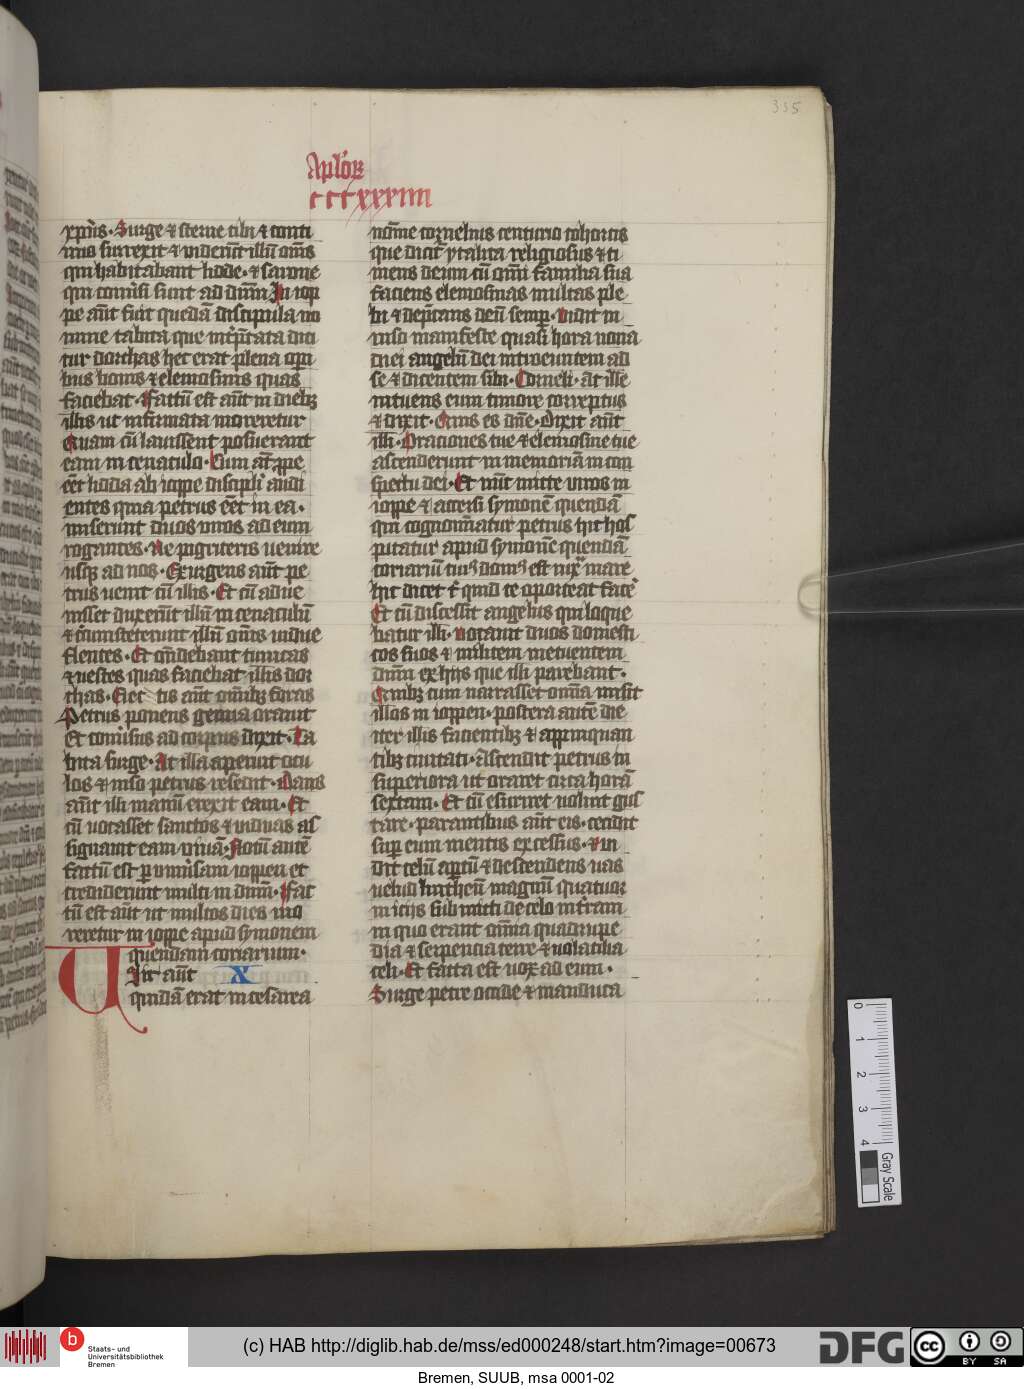 335
Apl'oꝝ
cccxxxiiii
xp̄us. Surge ⁊ sterne tibi ⁊ conti
nuo surrexit ⁊ uideru̅t illu̅ om̅s
qui habitabant lidde. ⁊ sarone
qui co̅uersi sunt ad dn̅m. In iop
pe aut̅ fuit queda̅ discipula no
mine tabita que int̅p̅tata dici
tur dorchas hec erat plena op̅i
bus bonis ⁊ elemosinis quas
faciebat. Fattu̅ est aut̅ in diebꝫ
illis ut infirmata moreretur
Quam cu̅ lauissent posuerunt
eam in cenaculo. Cum at̅ ꝓpe
e̅et lidda ab ioppe discipli audi
entes quia petrus e̅et in ea.
miserunt duos uiros ad eum
rogantes. Ne pigriteris uenire
usqꝫ ad nos. Exurgens aut̅ pe
trus uenit cu̅ illis. Et cu̅ adue
nisset duxeru̅t illu̅ in cenaculu̅
⁊ c̅cumsteterunt illu̅ om̅s uidue
flentes. Et on̅debant tunicas
⁊ uestes quas faciebat illis dor
chas. Eiec tis aut̅ om̅ibꝫ foras
Petrus ponens genua orauit
Et co̅uersus ad corpus dixit. Ta
bita surge. At illa aperuit ocu
los ⁊ uiso petro resedit. Dans
aut̅ illi manu̅ erexit eam. Et
cu̅ uocasset sanctos ⁊ uiduas as
signauit eam uiua̅. Notu̅ aute̅
fattu̅ est ꝑ uniu̅sam ioppen et
crediderunt multi in dn̅m. Fac
tu̅ est aut̅ ut multos dies mo
reretur in ioppe apud symonem
quendam coriarium.
Uir aut̅ X
quida̅ erat in cesarea
no̅ie cornelius centurio cohortis
que dicit̅ ytalica religiosus ⁊ ti
mens deum cu̅ om̅i familia sua
faciens elemosinas multas ple
bi ⁊ dep̅cans deu̅ semp̅. Uidit in
uiso manifeste quasi hora nona
diei angelu̅ dei introeuntem ad
se ⁊ dicentem sibi. Corneli. at ille
intuens eum timore correptus
⁊ dixit. Quis es dn̅e. Dixit aut̅
illi. Oraciones tue ⁊ elemosine tue
ascenderunt in memoria̅ in con
spectu dei. Et nu̅c mitte uiros in
ioppe ⁊ accersi symone̅ quenda̅
qui cognom̅atur petrus hic hos
pitatur apud symone̅ quenda̅
coriariu̅ cuiꝰ domꝰ est iuxa mare
hic dicet t̅ quid te oporteat face̅
Et cu̅ discessit angelus qui loque
batur illi. uocauit duos domesti
cos suos ⁊ militem metuentem
dn̅m ex hijs que illi parebant.
Quibꝫ cum narrasset om̅ia misit
illos in ioppen. postera aute̅ die
iter illis facientibꝫ ⁊ appinquan
tibꝫ ciuitati. Ascendit petrus in
superiora ut oraret circa hora̅
sextam. Et cu̅ esuriret uoluit gus
tare. parantibus aut̅ eis. cecidit
sup̅ eum mentis excessus. ⁊ ui
dit celu̅ ap̅tu̅ ⁊ descendens uas
uelud lintheu̅ magnu̅ quatuor
inicijs submitti de celo in t̅ram
in quo erant om̅ia quadrupe
dia ⁊ serpencia terre ⁊ uolatilia
celi. Et facta est uox ad eum.
Surge petre occide ⁊ manduca
0 1 2 3 4
Gray Scale
b Staats- und
Universitätsbibliothek
Bremen
(c) HAB http://diglib.hab.de/mss/ed000248/start.htm?image=00673
DFG
cc BY SA
Bremen, SUUB, msa 0001-02